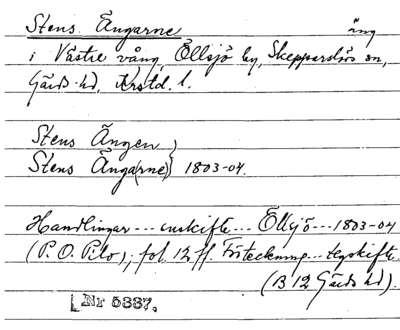 Stens Ängarne äng
i Västre vång, Ellsjö by, Skepparslövs sn,
Gärds hd, Krstd. l.
Stens Ängen
Stens Änga(rne) } 1803-04.
Handlingar --- enskifte --- Ellsjö --- 1803-04
(P. O. Pilo), fol. 12 ff. Förteckning --- ägoskifte.
(B 12 Gärds hd).
Nr 5887.